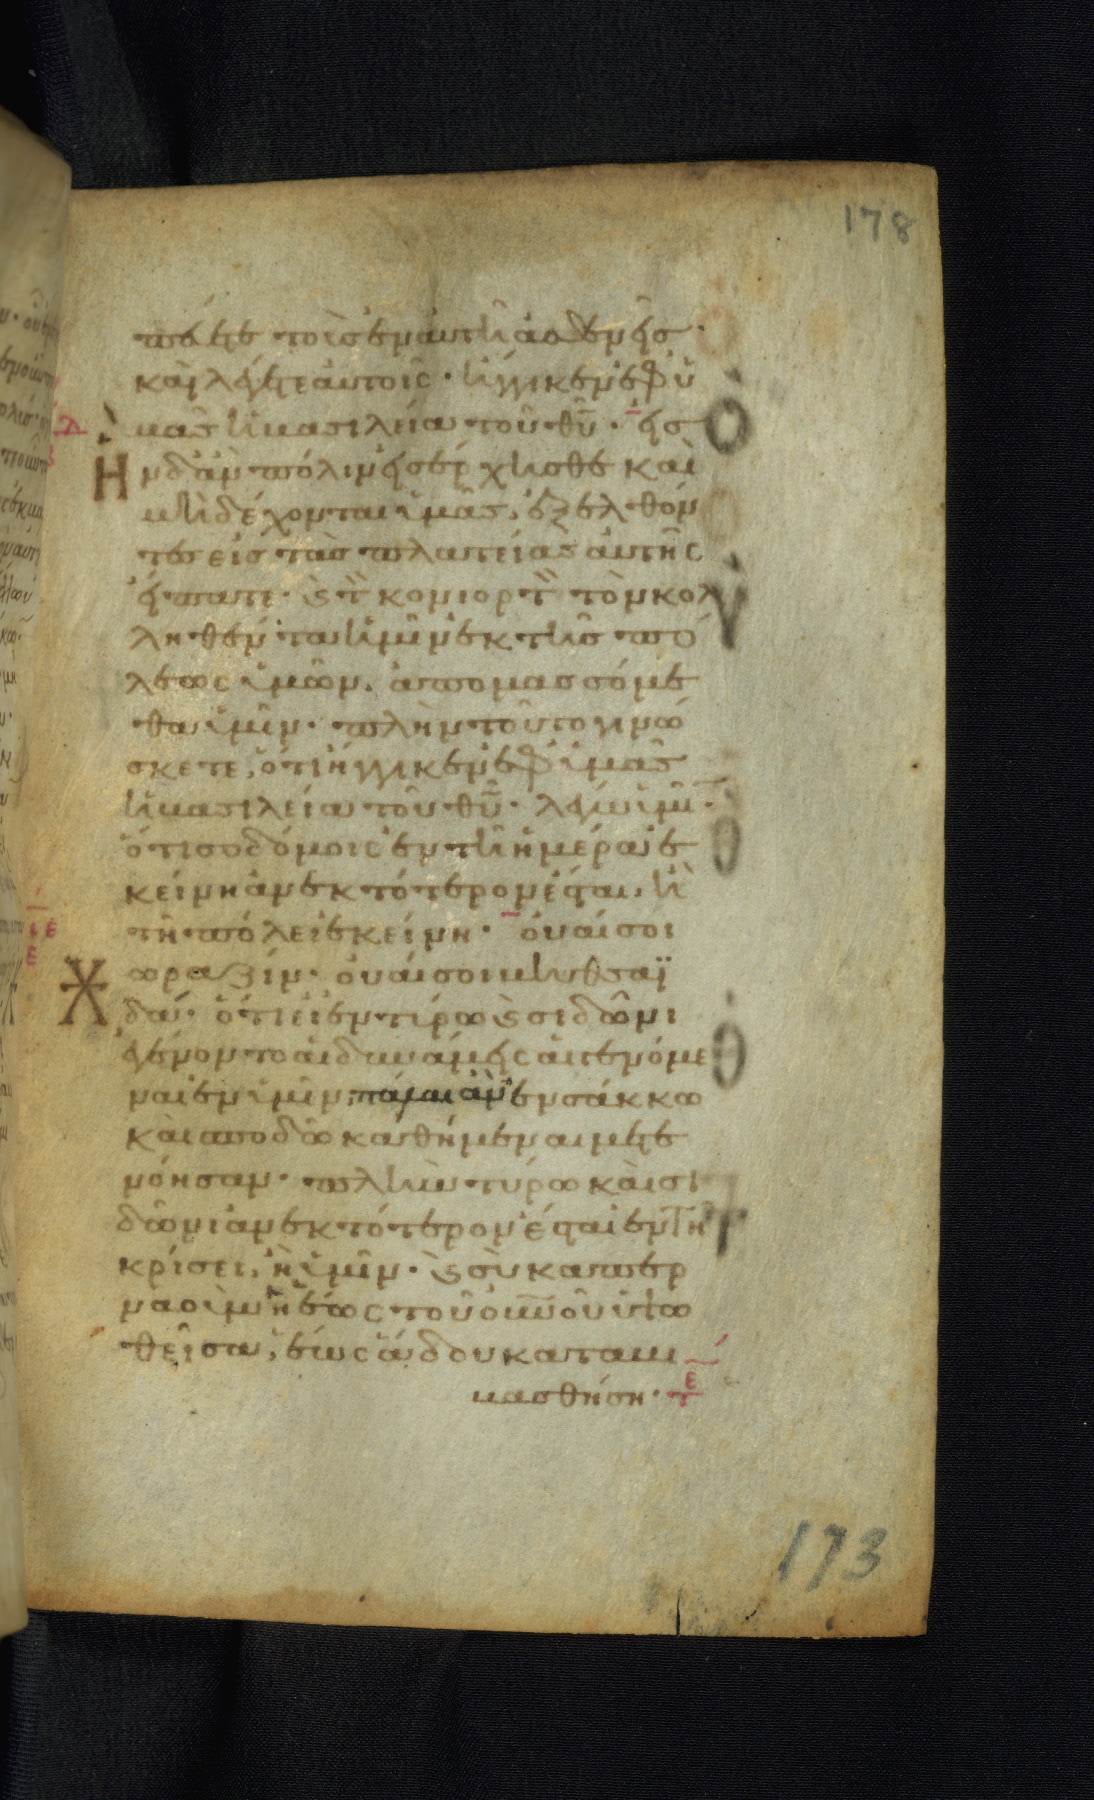 178
πεύετε τοὺς ἐν αὐτῆ ἀσθενεῖς·
καὶ λέγετε αὐτοῖς· ἤγγικεν ἐφ ὑ
μᾶς ἡ βασιλεία τοῦ θῦ· εἰσ
Ἣ
ν δ ἂν πόλιν εἰσέρχησθε καὶ
μὴ δέχονται ὑμᾶς, ἐξελθόν
τες εἰς τὰς πλατείας αὐτῆς
εἴπατε· καὶ τὸν κονιορτὸν τὸν κολ
ληθέντα ἡμῖν ἐκ τῆς πό
λεως ὑμῶν, ἀπομασσόμε
θα ὑμῖν· πλὴν τοῦτο γινώ
σκετε, ὅτι ἤγγικεν ἐφ ὑμᾶς
ἡ βασιλεία τοῦ θῦ· λέγω ὑμῖν·
ὅτι σοδόμοις ἐν τῆ ἡμέρα ἐ
κείνη ἀνεκτότερον ἔσται, ἢ
τῆ πόλει ἐκείνη· οὐαί σοι
Χ
ωραζίν· οὐαί σοι βηθσαϊ
δά· ὅτι εἰ ἐν τύρω καὶ σιδῶνι
ἐγένοντο αἱ δυνάμεις αἱ γενόμε
ναι ἐν ὑμῖν, πάλαι ἂν ἐν σάκκω
καὶ σποδῶ καθήμεναι μετε
νόησαν· πλὴν τύρω καὶ σι
δῶνι ἀνεκτότερον ἔσται ἐν τῆ
κρίσει, ἢ ὑμῖν· καὶ σὺ καπερ
ναοὺμ ἡ ἕως τοῦ οὐνοῦ ὑψω
θεῖσα, ἕως ἅδου καταβι
βασθήση·
173